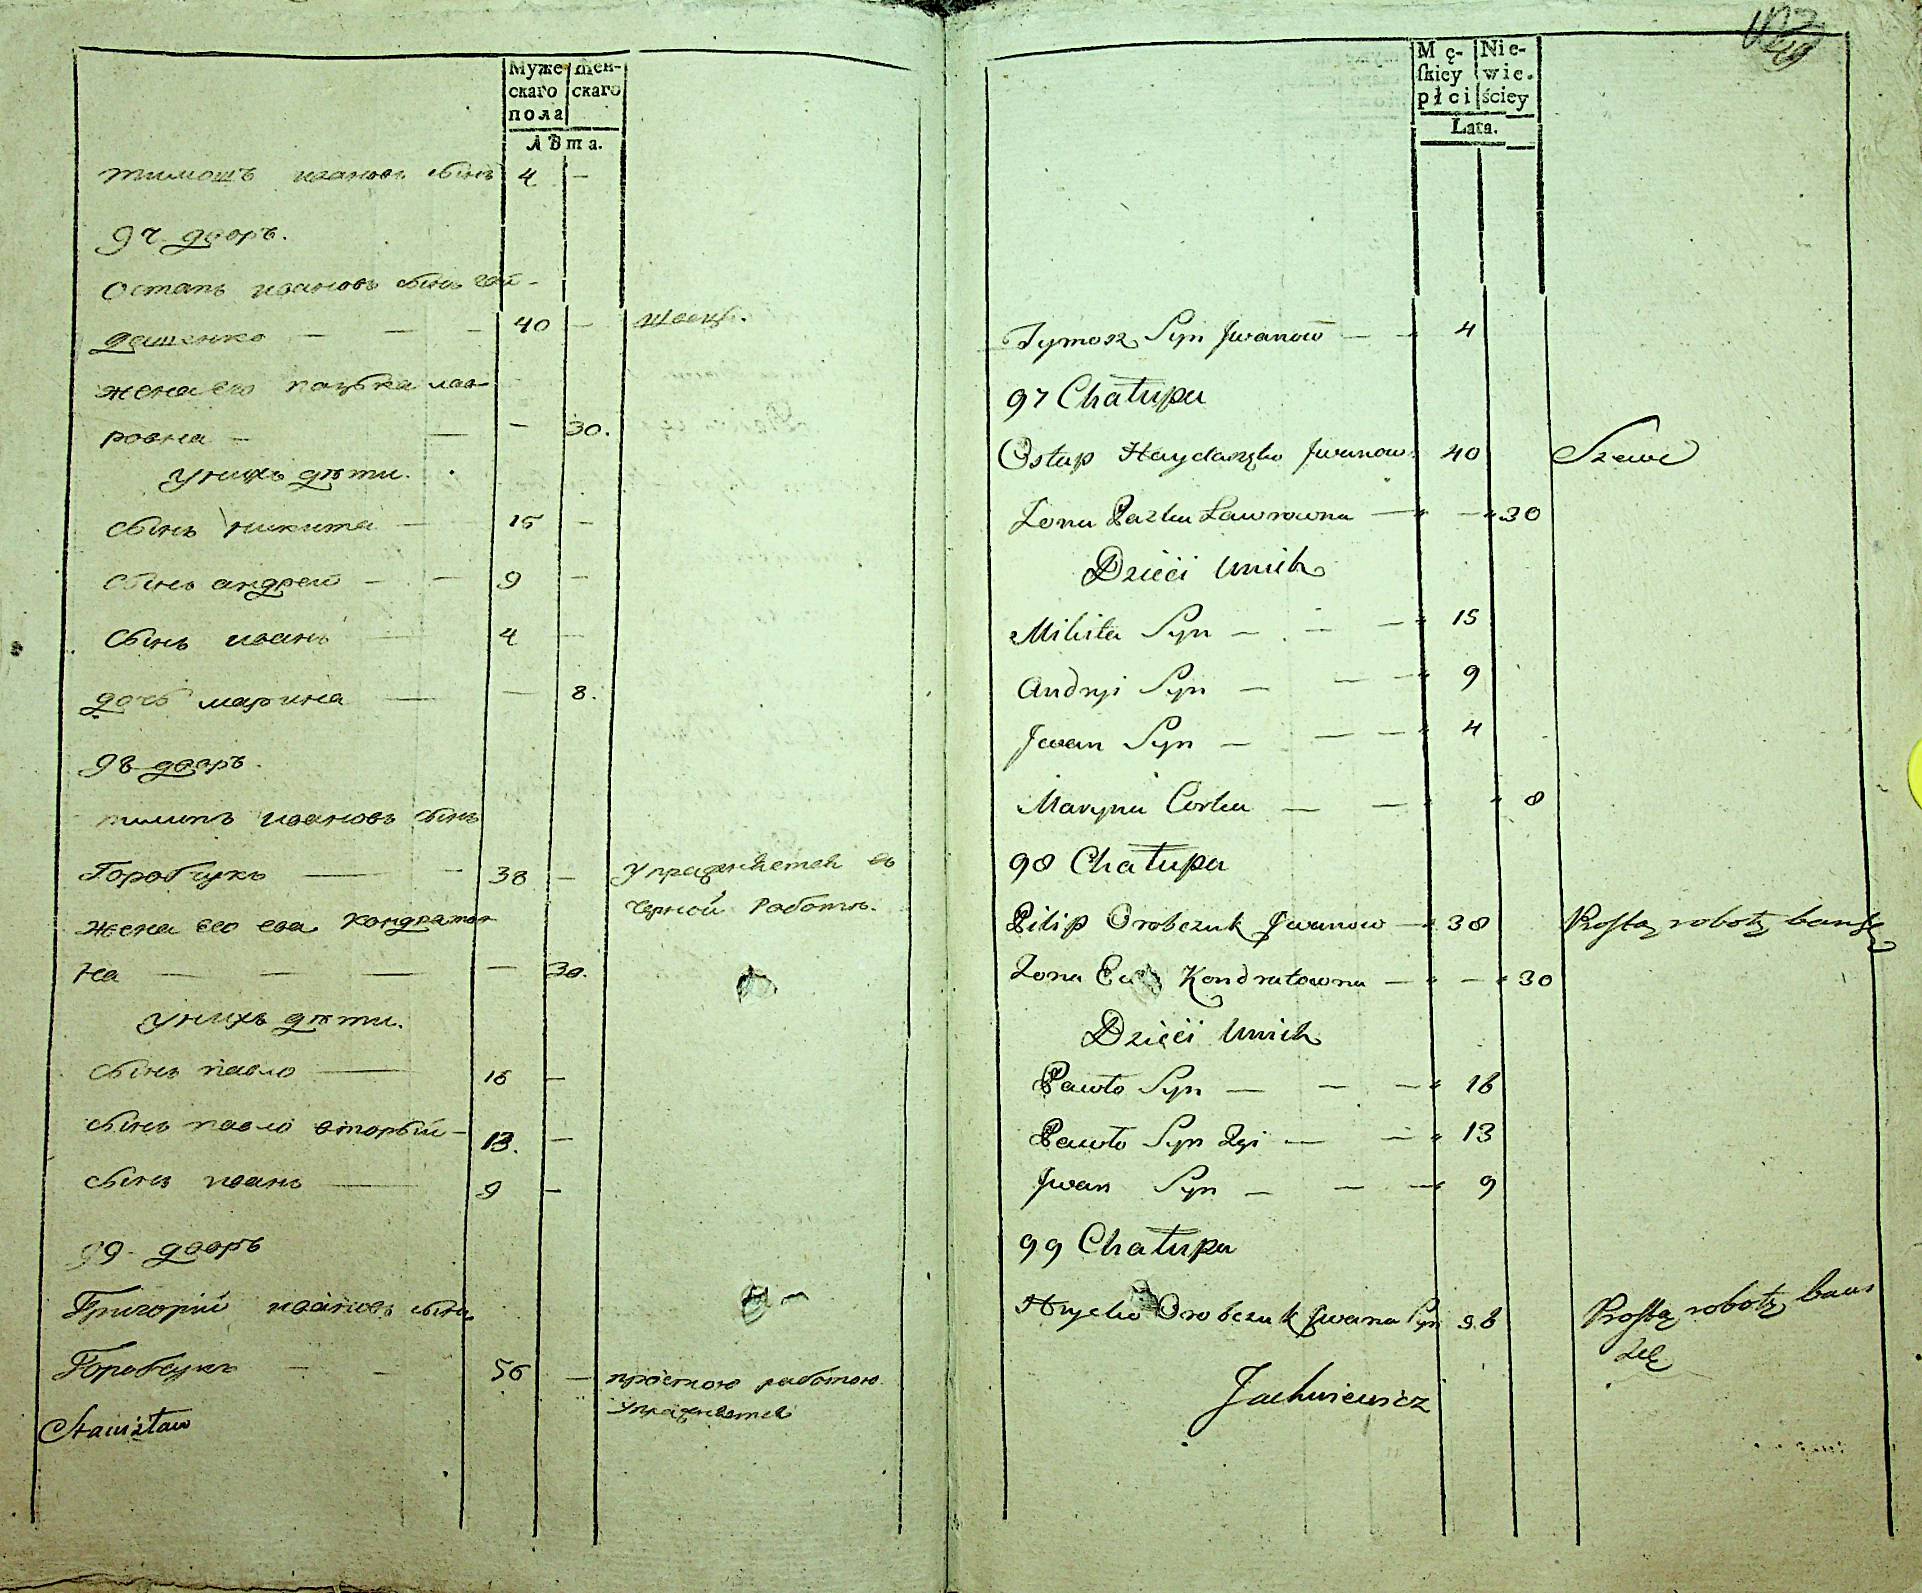 Муже- Жен-
скаго скаго
пола
Лѣта.
тимошъ ивановъ сынъ 4 —
97. дворъ.
Остапъ ивановъ сынъ гай-
дашенко — — — 40 — швецъ.
жена его пазька лав-
ровна — — — 30.
у нихъ дѣти.
сынъ никита — 15 —
сынъ андрей — — 9 —
сынъ иванъ — 4 —
дочь марина — — 8.
98 дворъ.
пилипъ ивановъ сынъ
Горобчукъ — — 38 — упражняется въ
черной работѣ.
жена его ева кондратов-
на — — — — 30.
у нихъ дѣти.
сынъ павло — 16 —
сынъ павло вторый — 13. —
сынъ иванъ — 9 —
99. дворъ
Григорій ивановъ сынъ
Горобчукъ — — 56 — простою работою
упражняется
Stanisław
Mę- Nie-
skiey wie-
płci ściey
Lata.
Tymosz Syn Jwanow — — 4
97 Chałupa
Ostap Haydaszko Jwanow 40 Szewc
Żona Pazka Ławrowna — — 30
Dzieci Unich
Mikita Syn — — — 15
Andryi Syn — — — 9
Jwan Syn — — — 4
Maryna Corka — — 8
98 Chałupa
Pilip Orobczuk Jwanow — 38 Prostą robotą bawi się
Żona Ewa Kondratowna — — 30
Dzieci Unich
Pawło Syn — — — 16
Pawło Syn 2gi — — 13
Jwan Syn — — — 9
99 Chałupa
Hrycko Orobczuk Jwana Syn 56 Prostą robotą bawi
się
Jachniewicz